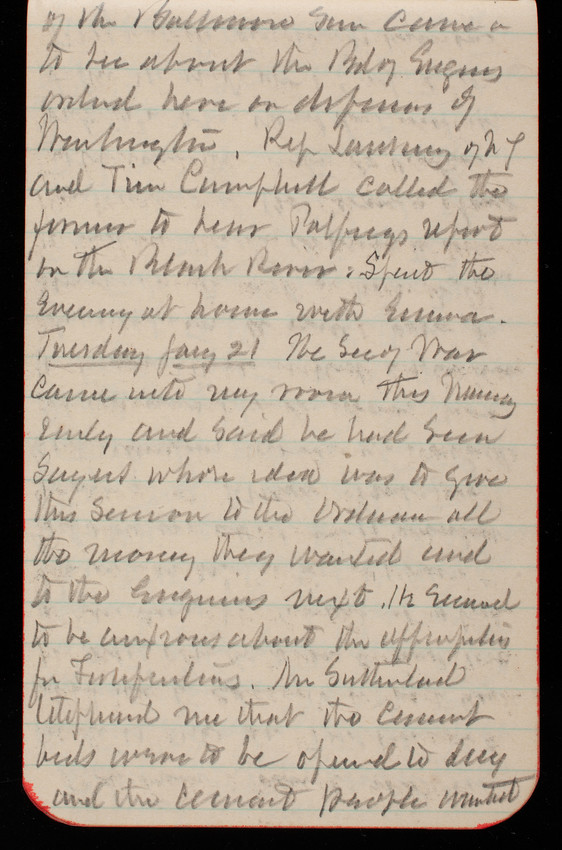 of the Baltimore Sun came
to see about the Bd of Engrs
ordered here on defenses of
Washington. Rep of N Y
and Tim Campbell called the
former to hear Palfreys report
on the Black River. Spent the
Evening at home with Emma.
Tuesday Jany 21 The Secy War
came into my room this
early and said he had seen
whose idea was to give
this Session to the Ordnance all
the money they wanted and
to the Engineers next. He seemed
to be anxious about the
for Fortifications. Mr Sutherland
telephoned me that the cement
bids were to be opened to day
and the cement people wanted